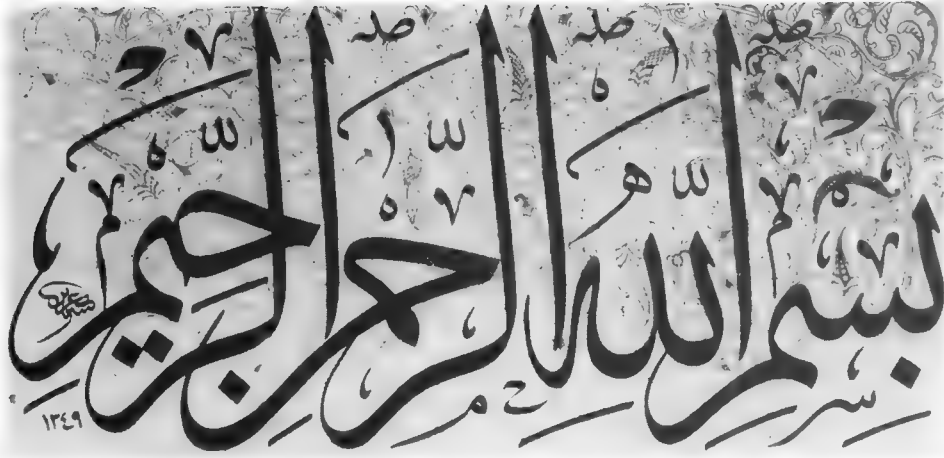 بِسْمِ اللهِ الرَّحْمٰنِ الرَّحِيمِ
١٣٤٩